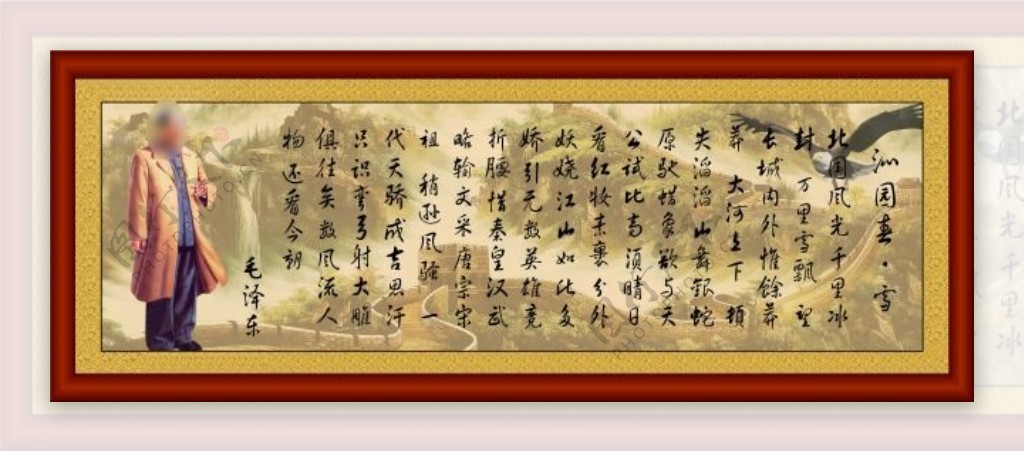 沁园春·雪
北国风光千里冰
封 万里雪飘 望
长城内外惟餘莽
莽 大河上下 顿
失滔滔山舞银蛇
原驰蜡象欲与天
公试比高须晴日
看红妆素裹分外
妖娆江山如此多
娇引无数英雄竞
折腰惜秦皇汉武
略输文采唐宗宋
祖 稍逊风骚 一
代天骄成吉思汗
只识弯弓射大雕
俱往矣数风流人
物还看今朝
毛泽东
北国风光千里冰